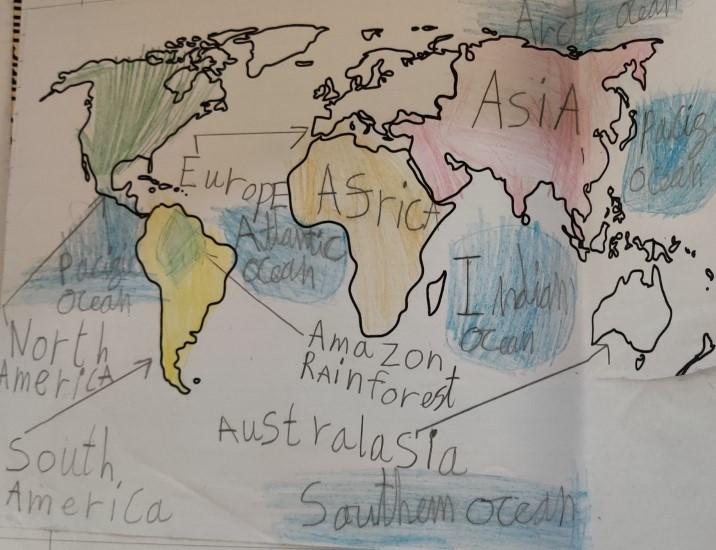 Arctic Ocean
ASiA
Pacific
Ocean
Europe
AfricA
Atlantic
Ocean
Pacific
Ocean
Indian
Ocean
North
AmericA
Amazon
RAinforest
AustralasIa
South
America
Southern ocean